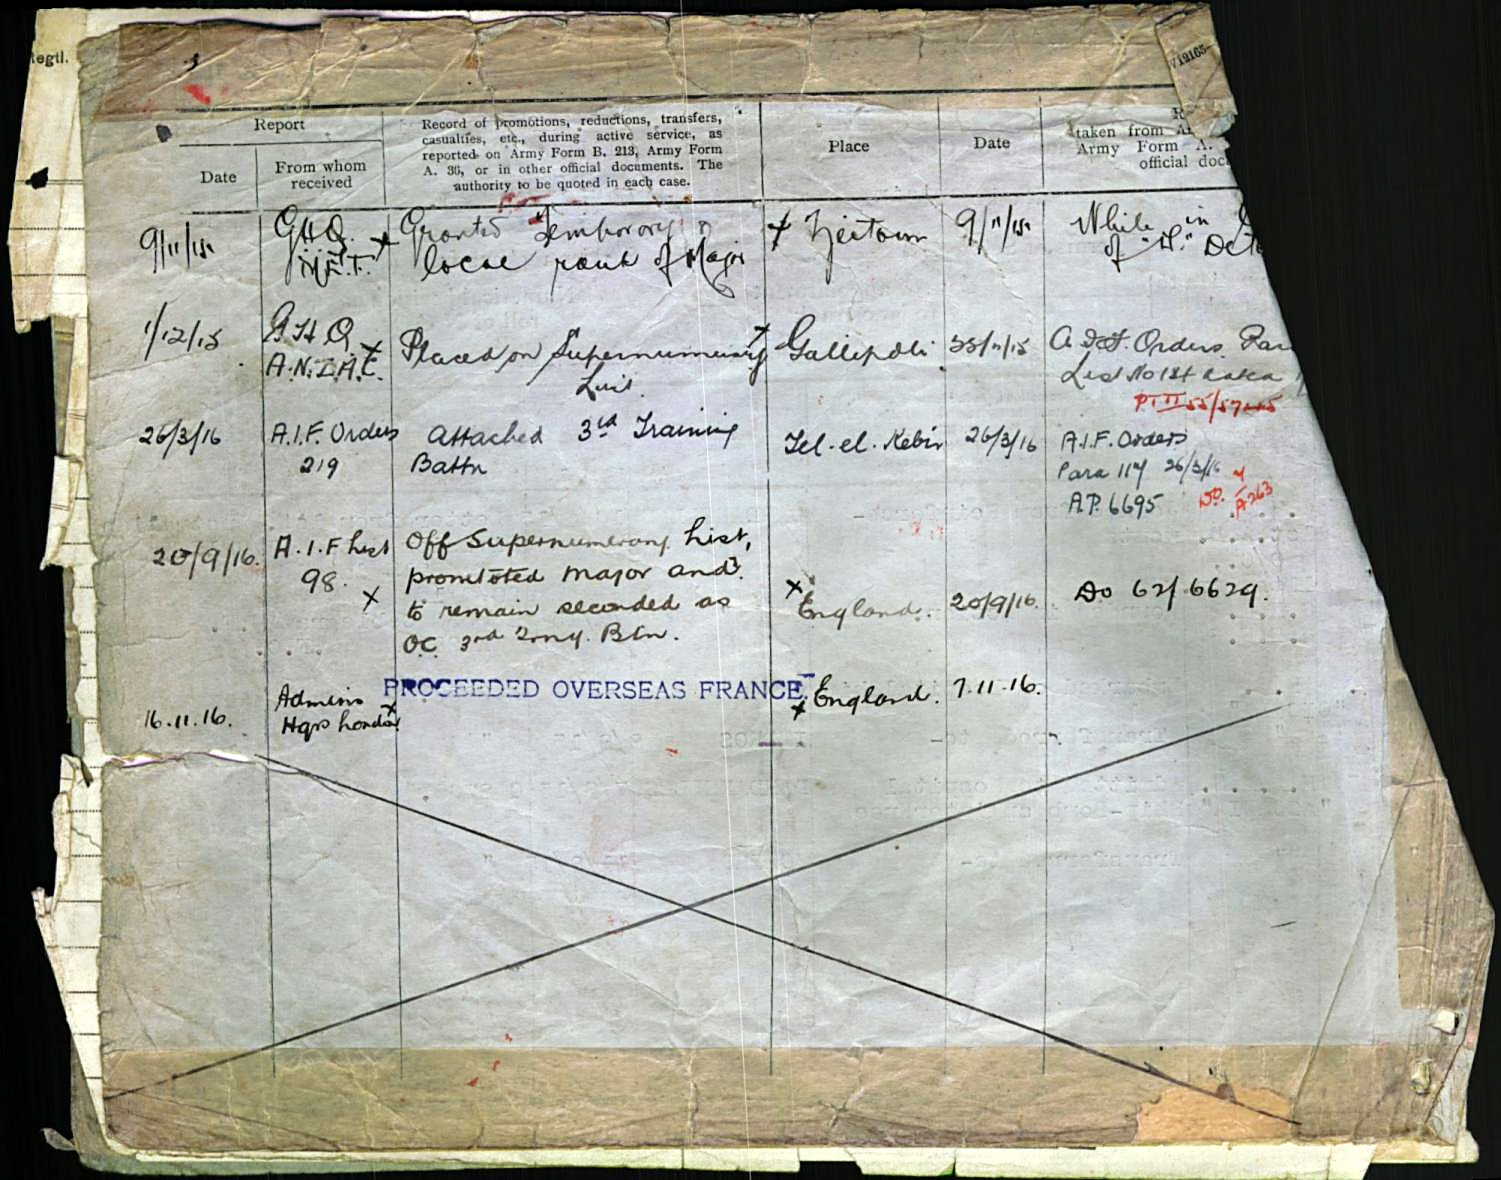 tegtl.
V12165-
Report
Date
From whom
received
Record of promotions, reductions, transfers,
casualties, etc., during active service, as
reported on Army Form B. 213, Army Form
A. 36, or in other official documents. The
authority to be quoted in each case.
Place
Date
taken from A
Army Form A.
official doc
9/11/15 G.H.Q. Granted Temporary & Zeitoun 9/11/15 While in
M.E.F. local rank of Major of "A." Det
1/12/15 G.H.Q. Placed on Supernumerary Gallipoli /11/15 A.I.F. Orders
A.N.Z.A.C. List.
PT II 55/57
26/3/16 A.I.F. Orders attached 3rd Training Tel-el-Kebir 26/3/16 A.I.F. Orders
219 Battn Para 114 26/3/16
A.P. 6695 A263
20/9/16. A.I.F List Off Supernumerary List,
98. promtoted Major and
to remain seconded as England. 20/9/16. Do 62/6629.
OC 3rd Trng. Btn.
PROCEEDED OVERSEAS FRANCE.
16.11.16. Admins England. 7.11.16.
Hqrs London